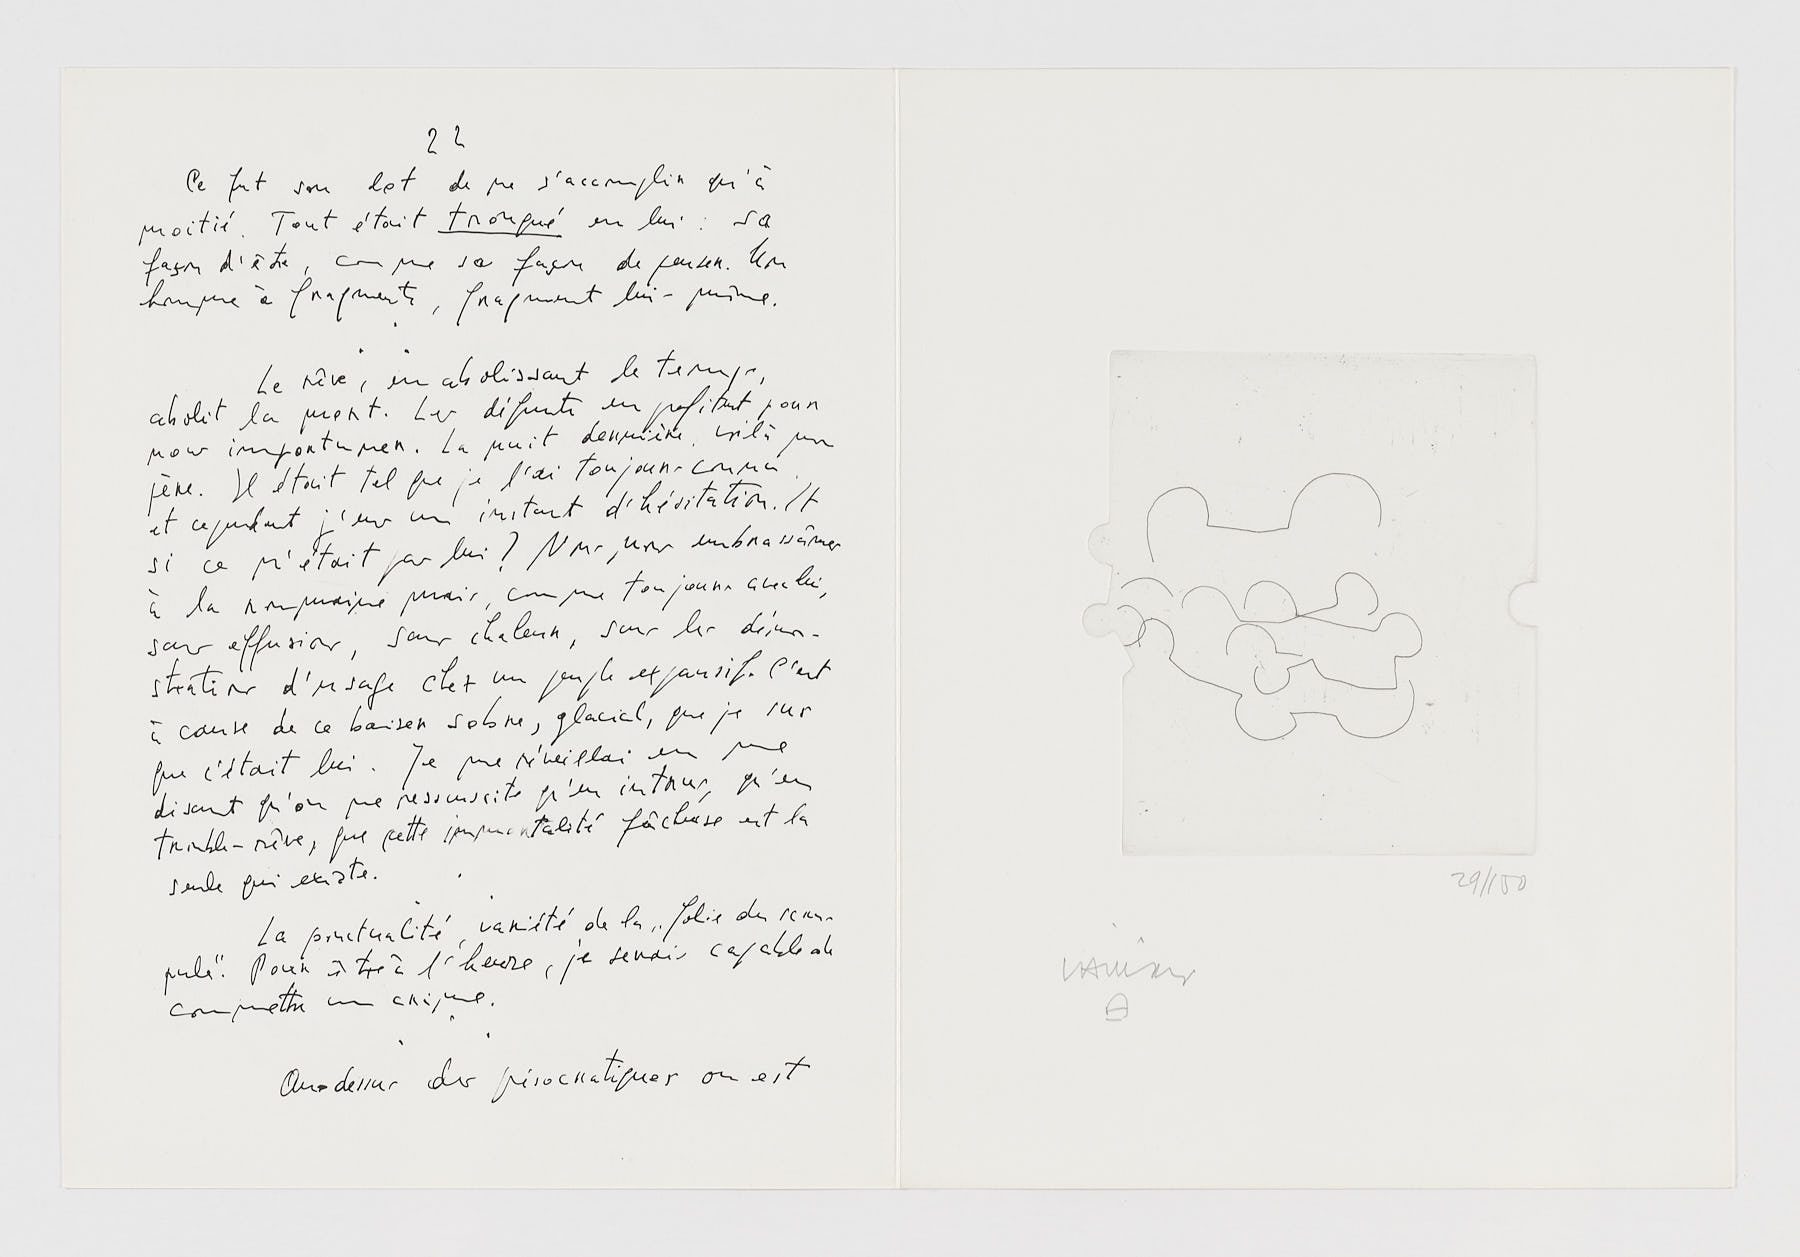 22
Ce fut son lot de ne s'accomplir qu'à
moitié. Tout était tronqué en lui : sa
façon d'être, comme sa façon de penser. Un
homme à fragments, fragment lui-même.
Le rêve, en abolissant le temps,
abolit la mort. Les défunts en profitent pour
nous importuner. La nuit dernière, voilà mon
père. Il était tel que je l'ai toujours connu,
et cependant j'eus un instant d'hésitation. Et
si ce n'était pas lui ? Nous nous embrassâmes
à la roumaine mais, comme toujours avec lui,
sans effusion, sans chaleur, sans les démon-
strations d'usage chez un peuple expansif. C'est
à cause de ce baiser sobre, glacial, que je sus
que c'était lui. Je me réveillai en me
disant qu'on ne ressuscite qu'en intrus, qu'en
trouble-rêve, que cette immortalité fâcheuse est la
seule qui existe.
La ponctualité, variété de la „folie du scru-
pule". Pour être à l'heure, je serais capable de
commettre un crime.
Au-dessus des présocratiques on est
29/150